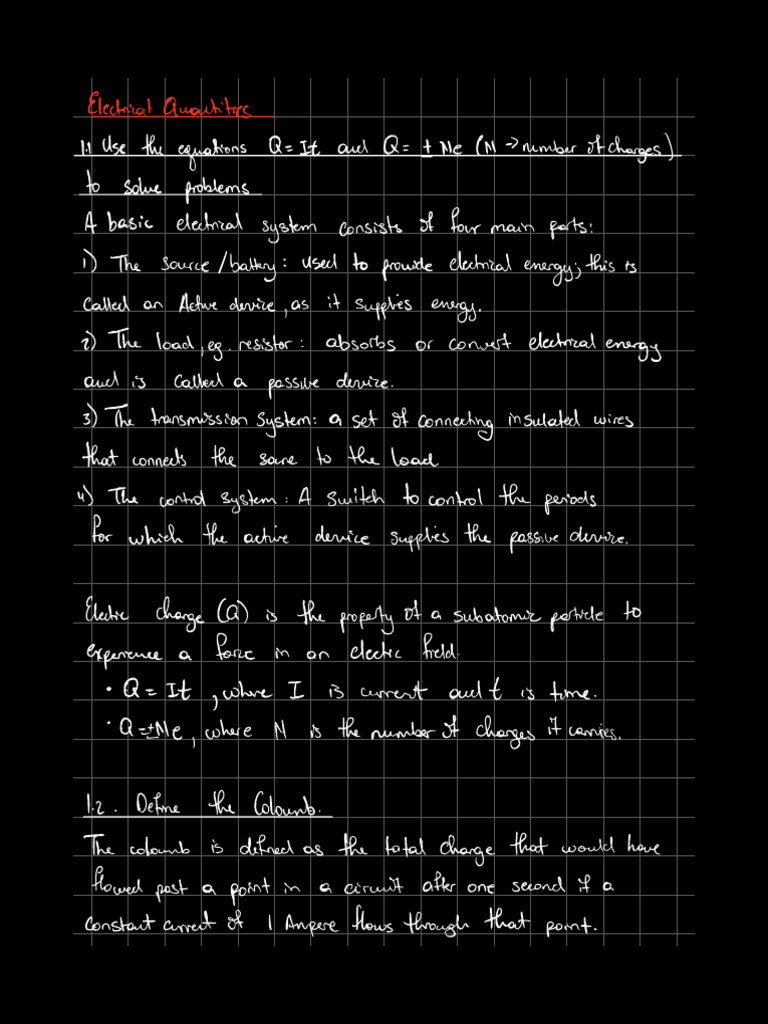 Electrical Quantities
1.1 Use the equations Q = It and Q = ± Ne (N → number of charges)
to solve problems
A basic electrical system consists of four main parts:
1) The source/battery: used to provide electrical energy; this is
called an Active device, as it supplies energy.
2) The load, eg. resistor: absorbs or convert electrical energy
and is called a passive device.
3) The transmission system: a set of connecting insulated wires
that connects the sorce to the load
4) The control system: A switch to control the periods
for which the active device supplies the passive device.
Electric charge (Q) is the property of a subatomic particle to
experience a force in an electric field.
• Q = It, where I is current and t is time.
• Q = ±Ne, where N is the number of charges it carries.
1.2. Define the Coloumb.
The coloumb is defined as the total charge that would have
flowed past a point in a circuit after one second if a
constant current of 1 Ampere flows through that point.